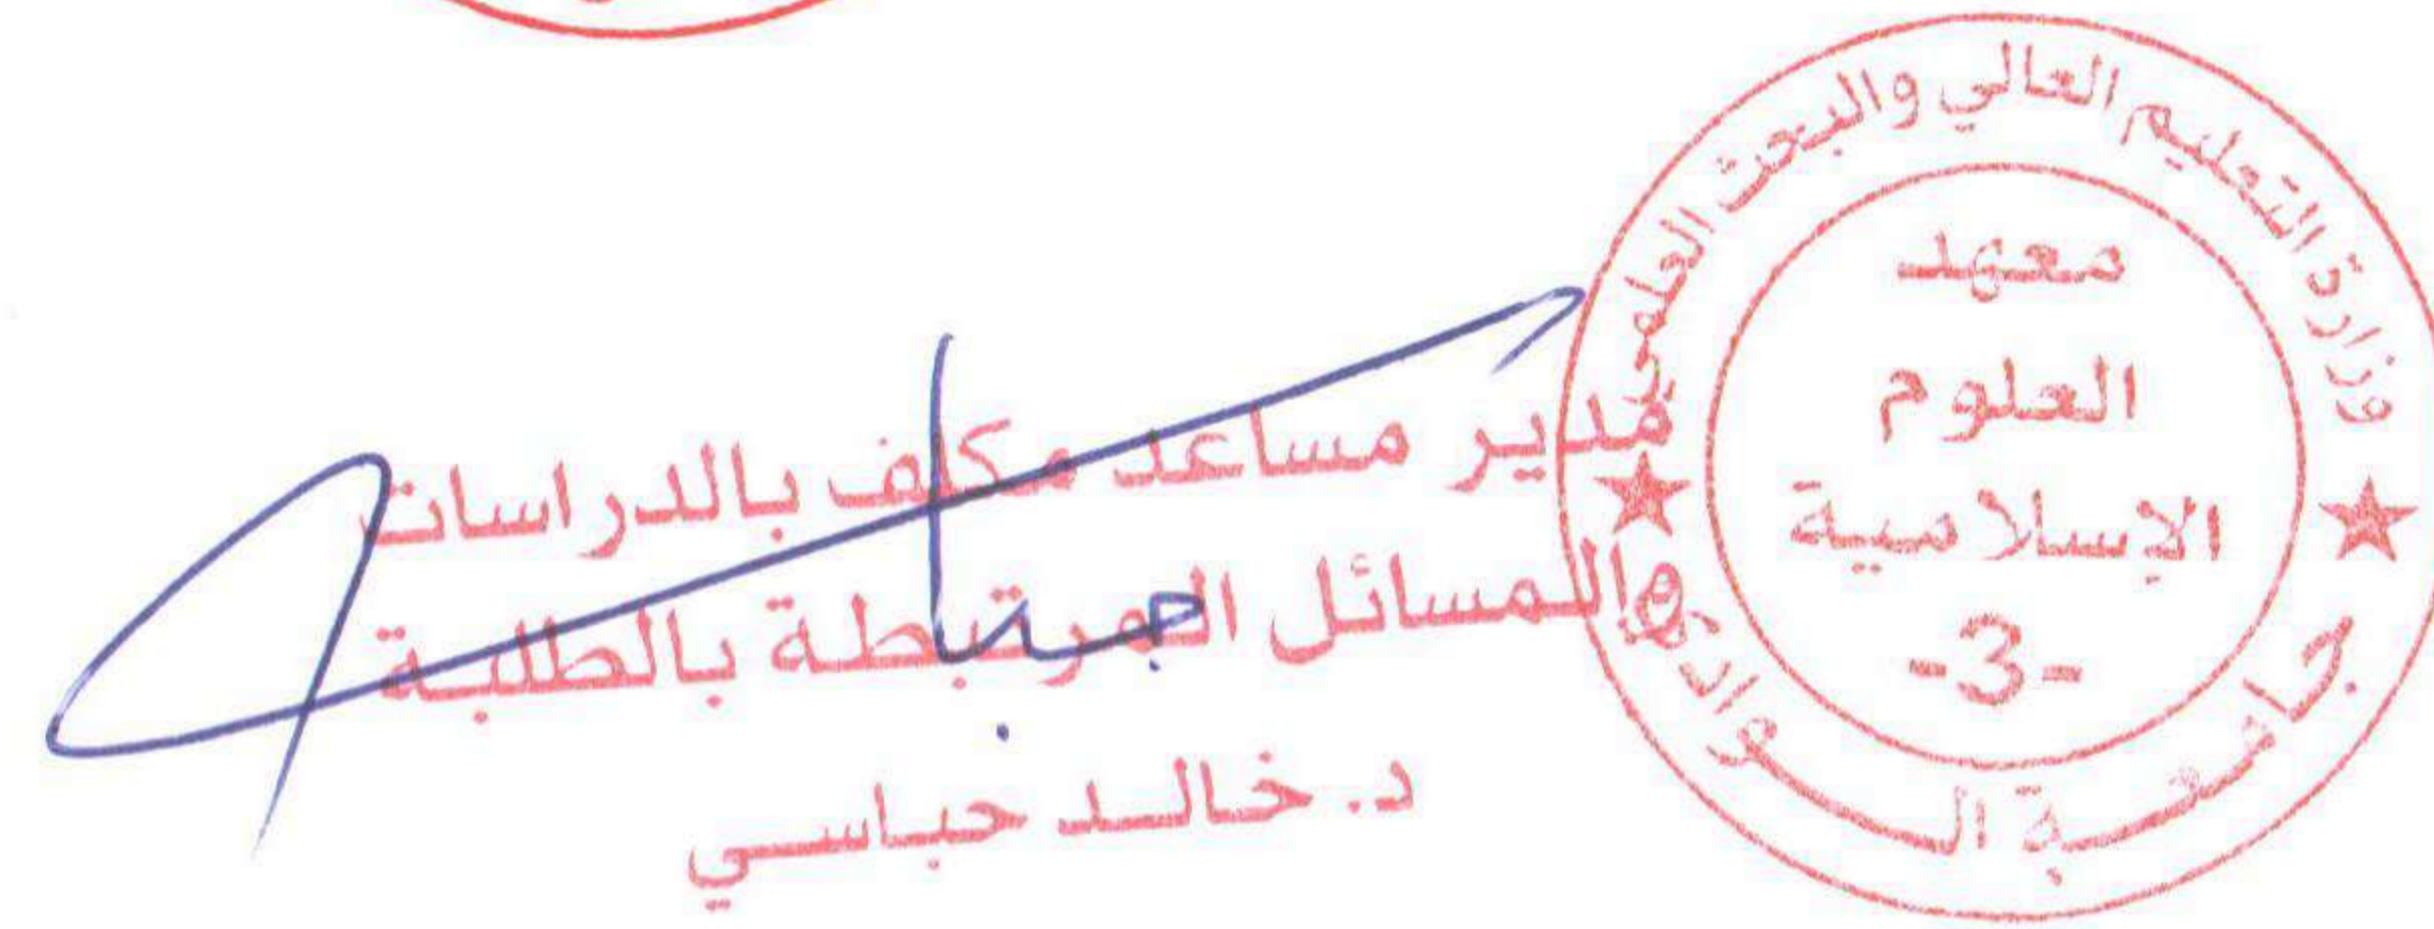 وزارة التعليم العالي والبحث العلمي
معهد
العلوم
الإسلامية
-3-
جامعة الوادي
مدير مساعد مكلف بالدراسات
والمسائل المرتبطة بالطلبة
د. خالد حباسي